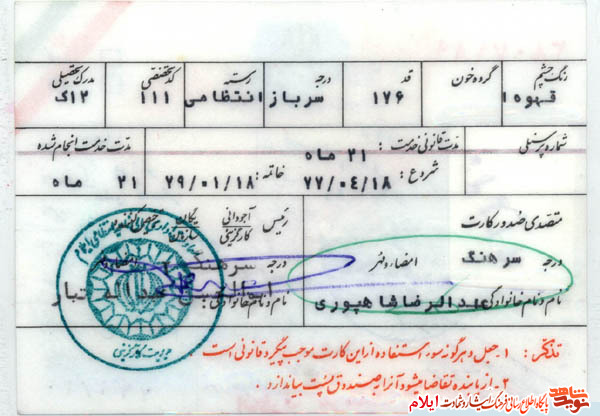 رنگ چشم گروه خون قد درجه رسته کد تخصصی مدرک تحصیلی
قهوه ا ۱۷۶ سرباز انتظامی ۱۱۱ ۱۲ک
شماره پرسنلی مدت قانونی خدمت : ۲۱ ماه مدت خدمت انجام شده
شروع : ۷۷/۰۴/۱۸ خاتمه : ۷۹/۰۱/۱۸ ۲۱ ماه
متصدی صدور کارت
رئیس آجودانی کارگزینی یگان سازمان
درجه سرهنگ امضاء و مهر
درجه سرهنگ
نام و نام خانوادگی عبدالرضا شاهپوری
نام و نام خانوادگی : تبار
مدیریت کارگزینی
تذکر : ۱- جعل و هرگونه سوء استفاده از این کارت موجب پیگرد قانونی است
۲- از یابنده تقاضا میشود آنرا به صندوق پست بیاندازد.
نوید شاهد
پایگاه اطلاع رسانی فرهنگ ایثار و شهادت ایلام